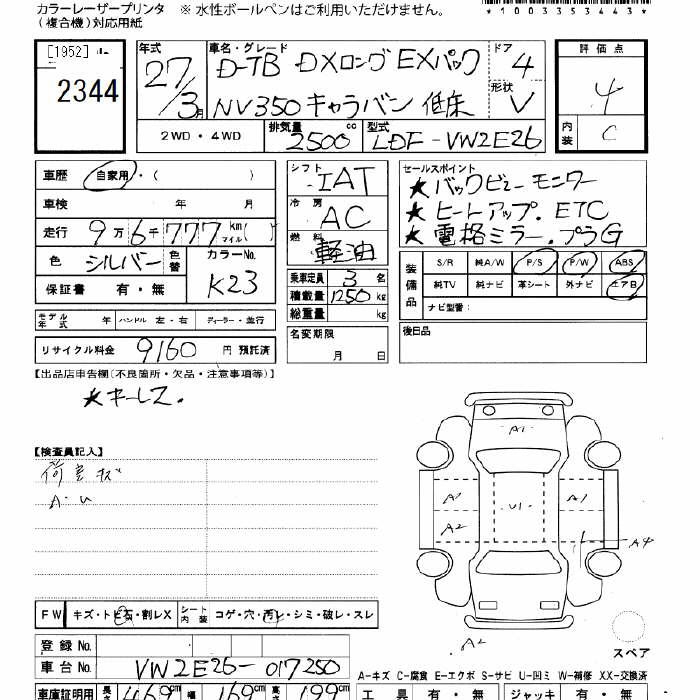 カラーレーザープリンタ ※ 水性ボールペンはご利用いただけません。
(複合機)対応用紙
*1003353443*
[1952]
2344
年式 27/3月
車名・グレード D-TB DXロング EXパック
NV350キャラバン 低床
ドア 4
形状 V
評価点 4
内装 C
2WD・4WD 排気量 2500 cc 型式 LDF-VW2E26
車歴 自家用・( )
車検 年 月
走行 9万6千777 km マイル ( )
色 シルバー 色替 カラーNo. K23
保証書 有・無
モデル年式 年 ハンドル 左・右 ディーラー・並行
リサイクル料金 9160 円 預託済
シフト IAT
冷房 AC
燃料 軽油
乗車定員 3 名
積載量 1250 kg
総重量 kg
名変期限
月 日
セールスポイント
★バックビューモニター
★ヒートアップ.ETC
★電格ミラー.プラG
装備品 S/R 純A/W P/S P/W ABS
純TV 純ナビ 革シート 外ナビ エアB
ナビ型番:
後日品
【出品店申告欄(不良箇所・欠品・注意事項等)】
★キーレス.
【検査員記入】
荷室キズ
A.U
A1
A1 U1 A1
A2 A4
A2
スペア
FW キズ・トビ石・割レX シート内装 コゲ・穴・汚レ・シミ・破レ・スレ
登録No.
車台No. VW2E26-017250
A-キズ C-腐食 E-エクボ S-サビ U-凹ミ W-補修 XX-交換済
車庫証明用 長さ 469cm 幅 169cm 高さ 199cm
工具 有・無 ジャッキ 有・無